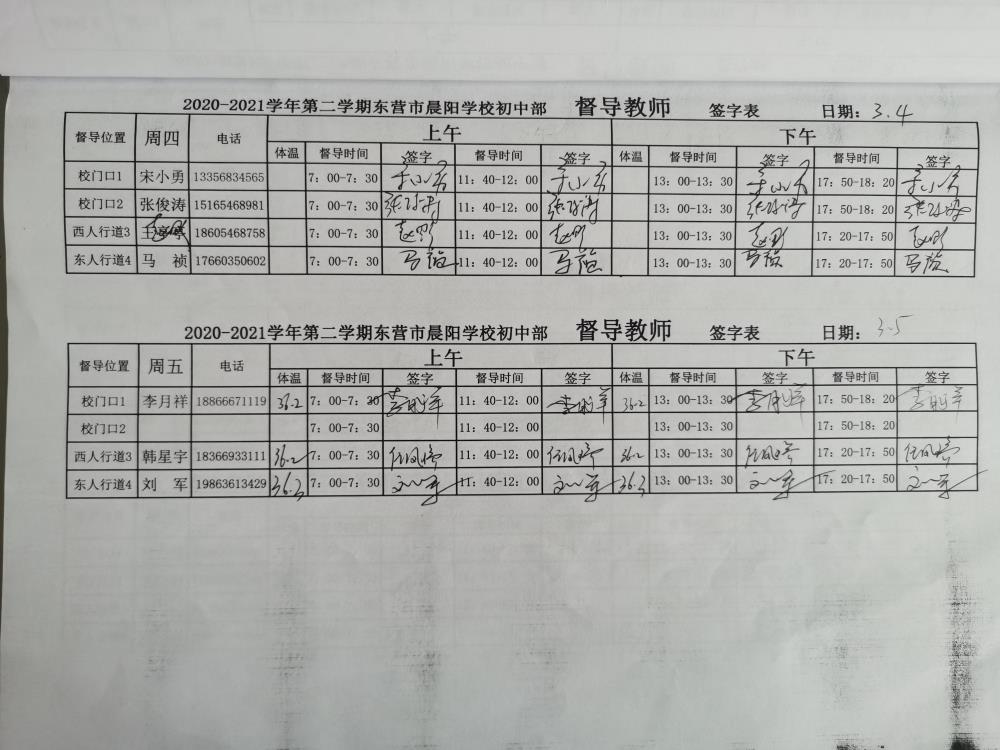 2020-2021学年第二学期东营市晨阳学校初中部 督导教师 签字表 日期：3.4
督导位置 周四 电话 上午 下午
体温 督导时间 签字 督导时间 签字 体温 督导时间 签字 督导时间 签字
校门口1 宋小勇 13356834565 7：00-7：30 宋小勇 11：40-12：00 宋小勇 13：00-13：30 宋小勇 17：50-18：20 宋小勇
校门口2 张俊涛 15165468981 7：00-7：30 张俊涛 11：40-12：00 张俊涛 13：00-13：30 张俊涛 17：50-18：20 张俊涛
西人行道3 18605468758 7：00-7：30 11：40-12：00 13：00-13：30 17：20-17：50
东人行道4 马 祯 17660350602 7：00-7：30 马祯 11：40-12：00 马祯 13：00-13：30 马祯 17：20-17：50 马祯
2020-2021学年第二学期东营市晨阳学校初中部 督导教师 签字表 日期：3.5
督导位置 周五 电话 上午 下午
体温 督导时间 签字 督导时间 签字 体温 督导时间 签字 督导时间 签字
校门口1 李月祥 18866671119 36.2 7：00-7：30 李月祥 11：40-12：00 李月祥 36.2 13：00-13：30 李月祥 17：50-18：20 李月祥
校门口2 7：00-7：30 11：40-12：00 13：00-13：30 17：50-18：20
西人行道3 韩星宇 18366933111 36.2 7：00-7：30 任凤婷 11：40-12：00 任凤婷 36.2 13：00-13：30 任凤婷 17：20-17：50 任凤婷
东人行道4 刘 军 19863613429 36.3 7：00-7：30 刘军 11：40-12：00 刘军 36.3 13：00-13：30 刘军 17：20-17：50 刘军